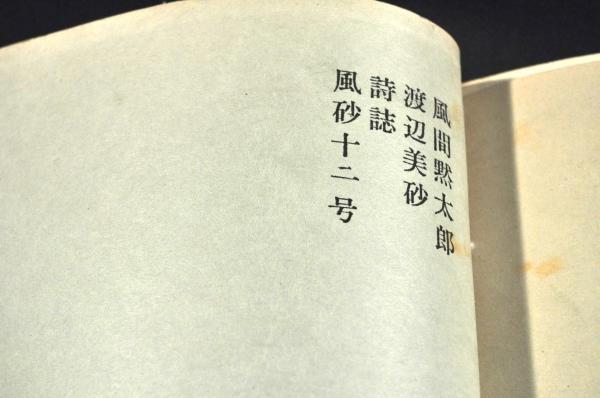 風間黙太郎
渡辺美砂
詩誌
風砂十二号